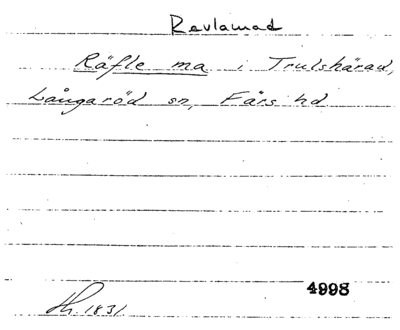 Revlamad
Räfle ma i Trulshärad,
Långaröd sn, Färs hd
4998
1831